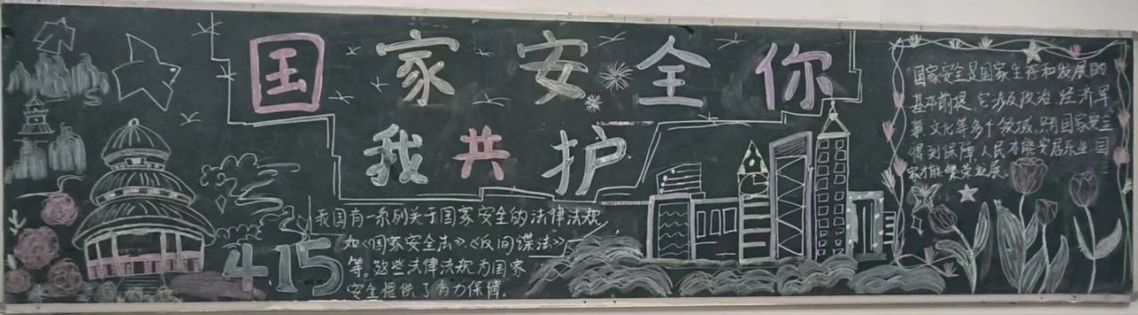 国家安全你
我共护
4.15
我国有一系列关于国家安全的法律法规,
如《国家安全法》、《反间谍法》
等。这些法律法规为国家
安全提供了有力保障。
国家安全是国家生存和发展的
基本前提,它涉及政治、经济、军
事、文化等多个领域。只有国家安全
得到保障,人民才能安居乐业,国
家才能繁荣发展。